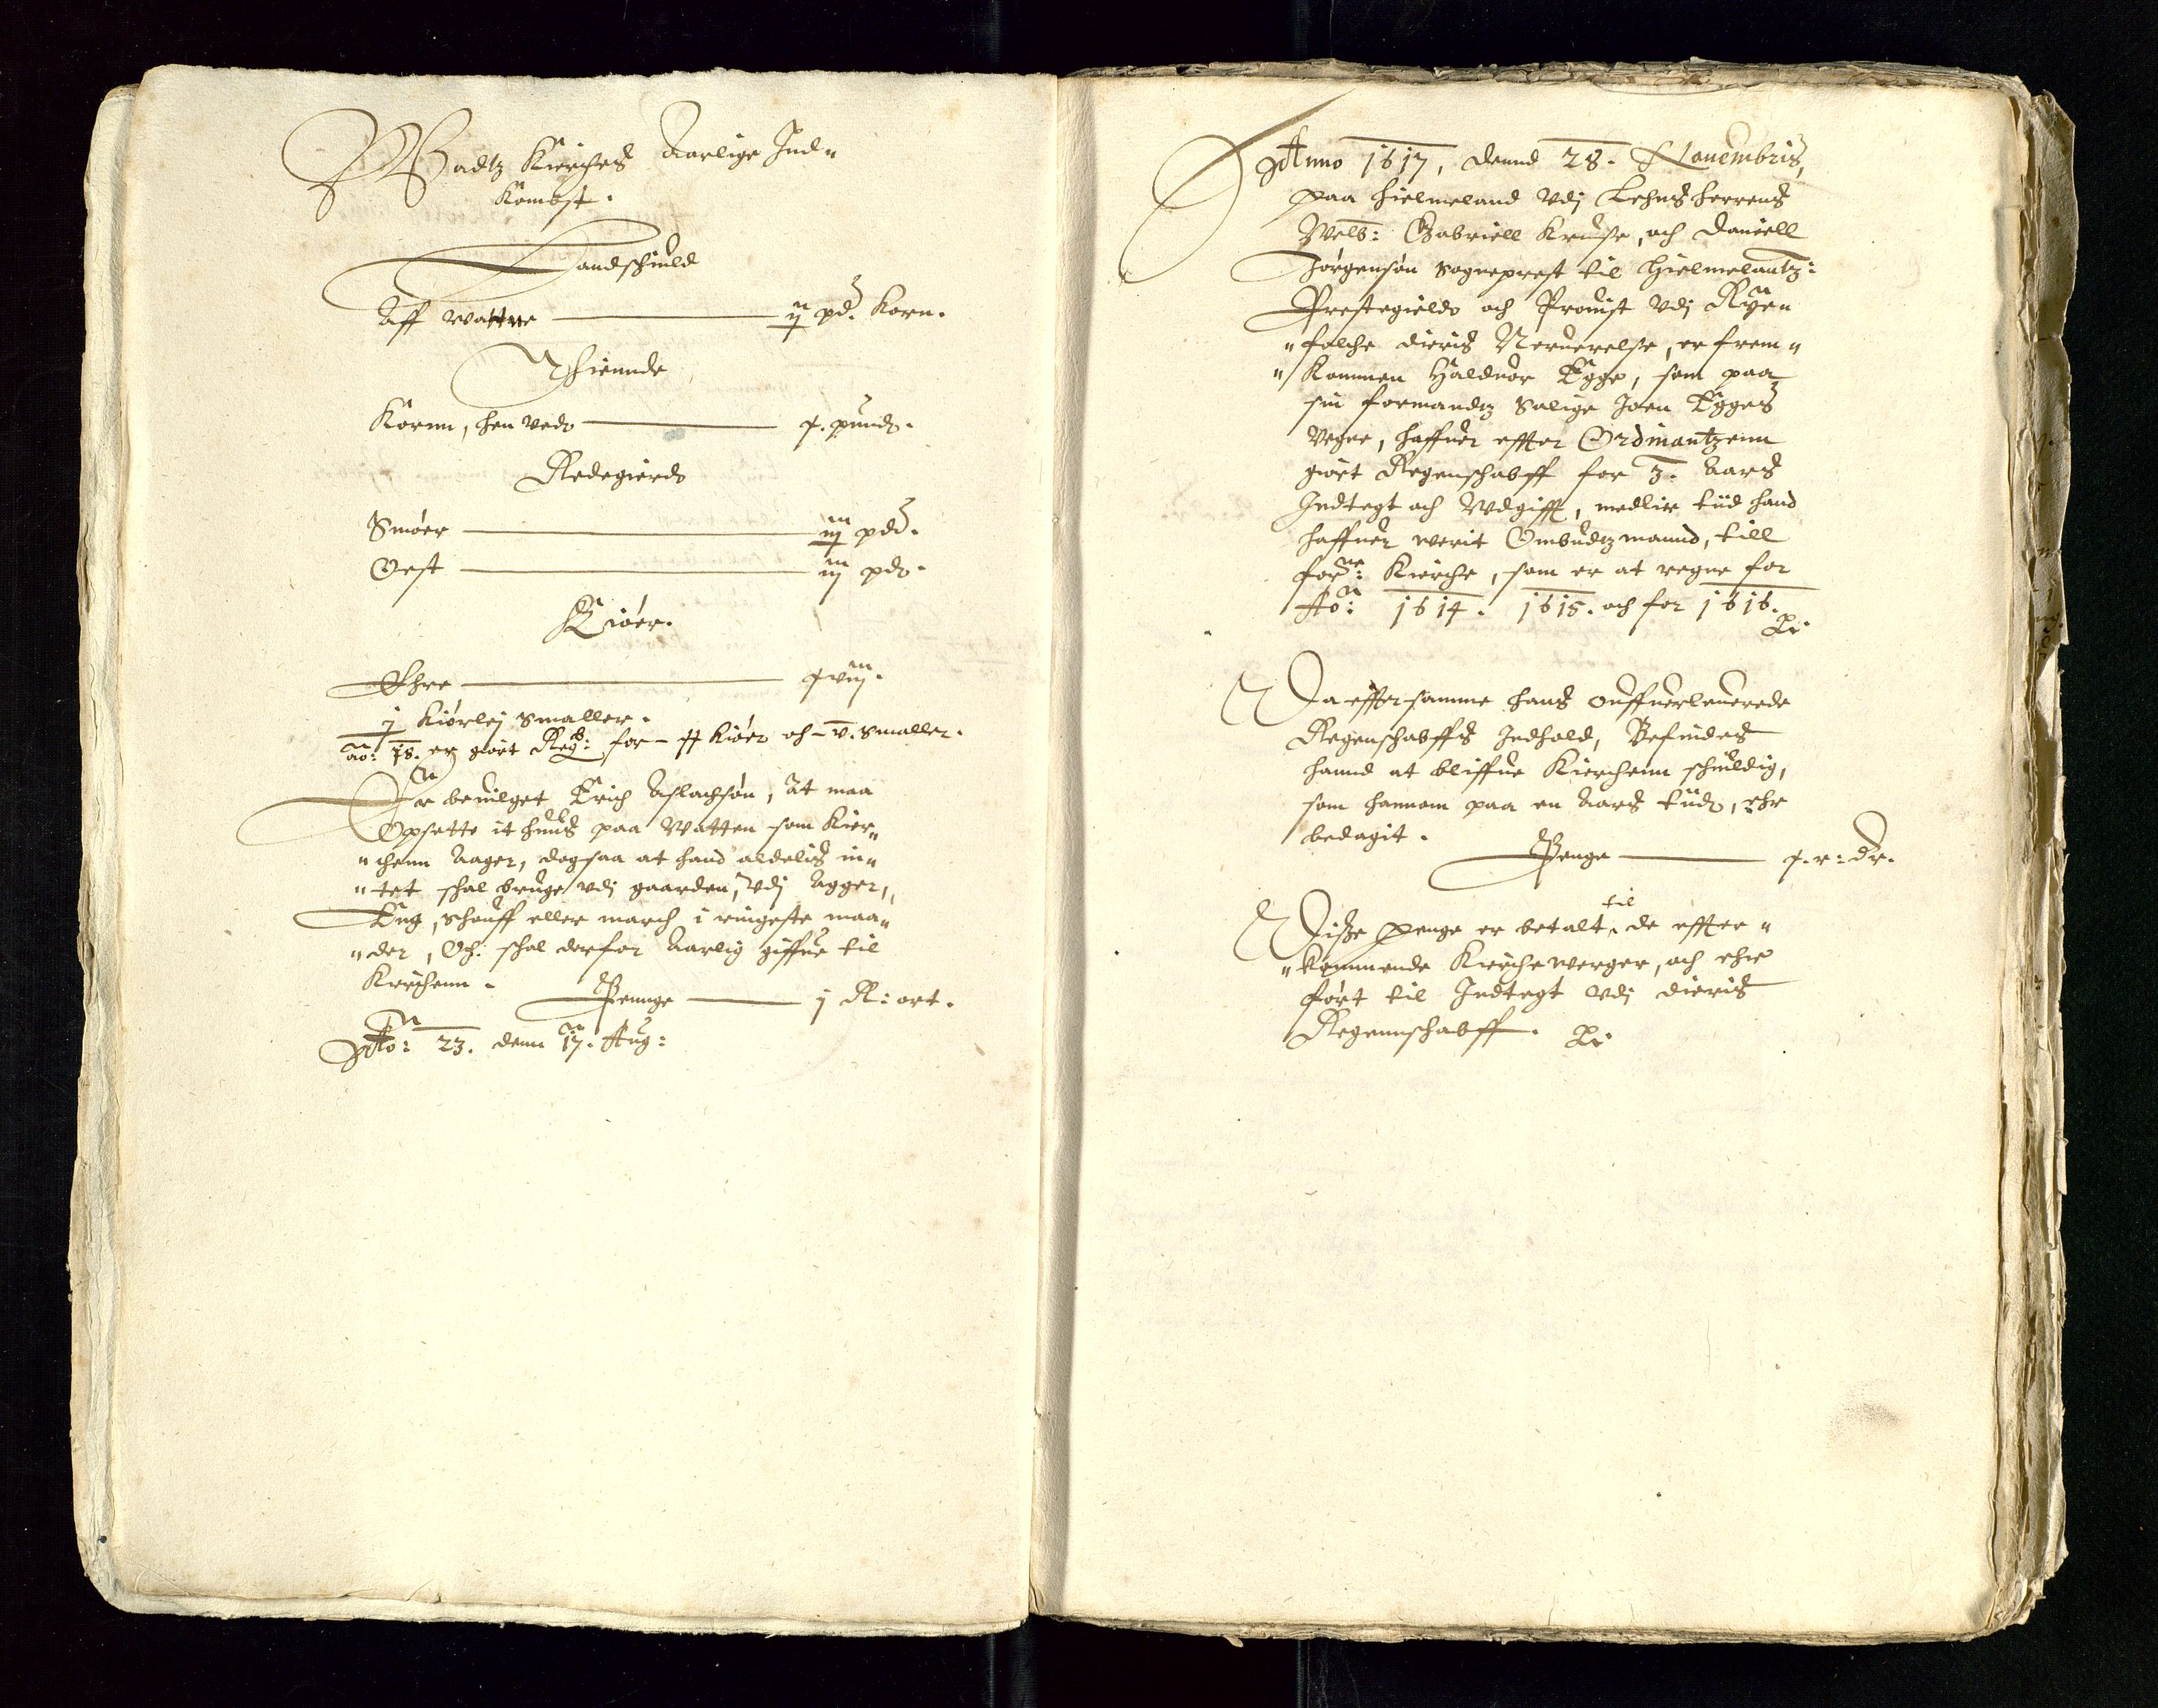 Wadtz Kierches Aarlige Ind-
Kombst.
Landschuld
Aff Wattne ij pd. Korn.
Thiennde
Kornn, hen ved 4. pund.
Redegierd
Smöer iij pd.
Oest iij pd.
Kiöer.
Ehre
j Kiörlej Smaller.
ao: 18. er giört Reg: for kiöer oh v. Smaller.
Er beuilget Erich Aslachsøn, At maa
Opsette it huus paa Watten som Kier„
„chenn Aager, dog saa at hand aldelis in„
„tet schal bruge vdj gaarden, vdj Agger,
Eng, Schouff eller march i ringeste maa„
„der, Och: schal derfor Aarlig giffue til
Kirchenn.
Pennge j R: ort.
Ao: 23. denn 17. Aug:
Anno 1617, dennd 28. Nouembris,
paa Hielmeland vdj Lehnsherrens
Welb: Gabriell Kruse, och Daniell
Jörgensøn Sogneprest til Hielmelantz:
Prestegield och Prouist vdj Rye„
„folche dieris Neruerelse, er frem„
„Kommen Halduor Egge, som paa
sin formandtz Salige Joen Egges
Vegne, haffuer effter Ordinantzenn
giört Regenschabff for 3. Aars
Indtegt och Wdgifft, medler tiid hand
haffuer werit Ombudtzmannd, till
forne: Kierche, som er at regne for
Ao: 1614. 1615. och for 1616.
Da effter samme hans Ouffuerleuerede
Regenschabffs Indhold, Befindes
hannd at bliffue Kierchenn schuldig,
som hannem paa en Aars tiid, ehr
bedagit.
Penge
Disse Penge er betalt til de effter„
„kommende Kierchewerger, och ehre
fört til Indtegt vdj dieris
Regennschabff.